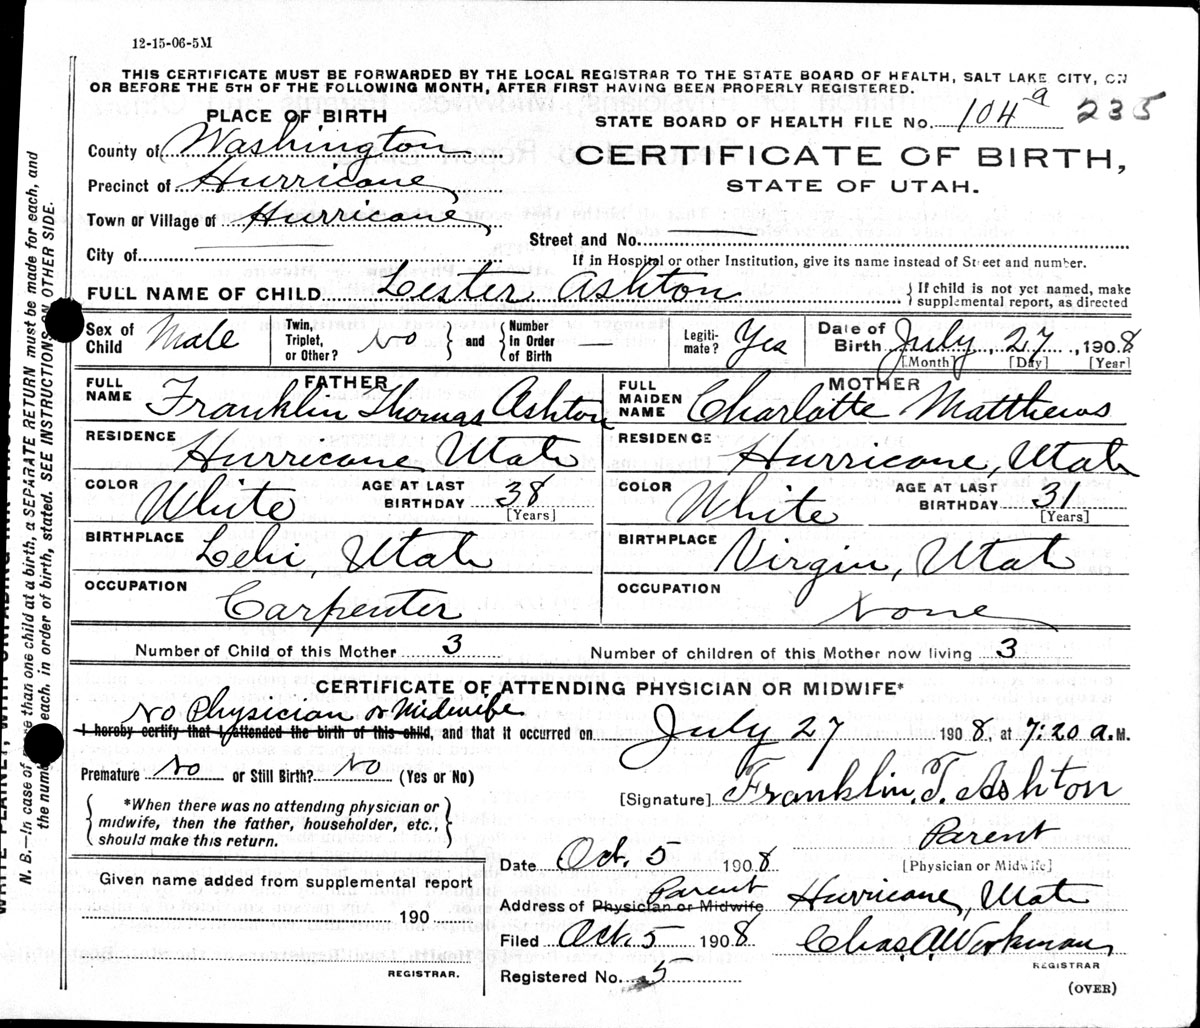 12-15-06-5M
THIS CERTIFICATE MUST BE FORWARDED BY THE LOCAL REGISTRAR TO THE STATE BOARD OF HEALTH, SALT LAKE CITY, ON
OR BEFORE THE 5TH OF THE FOLLOWING MONTH, AFTER FIRST HAVING BEEN PROPERLY REGISTERED.
PLACE OF BIRTH
STATE BOARD OF HEALTH FILE No. 104 a 235
County of Washington
CERTIFICATE OF BIRTH,
Precinct of Hurricane
STATE OF UTAH.
Town or Village of Hurricane
Street and No.
City of
If in Hospital or other Institution, give its name instead of Street and number.
FULL NAME OF CHILD Lester Ashton
{ If child is not yet named, make
supplemental report, as directed
Sex of Child Male
Twin, Triplet, or Other? No } and { Number In Order of Birth —
Legitimate? Yes
Date of Birth July, 27, 1908
[Month] [Day] [Year]
FATHER
FULL NAME Franklin Thomas Ashton
MOTHER
FULL MAIDEN NAME Charlotte Matthews
RESIDENCE Hurricane, Utah
RESIDENCE Hurricane, Utah
COLOR White AGE AT LAST BIRTHDAY 38 [Years]
COLOR White AGE AT LAST BIRTHDAY 31 [Years]
BIRTHPLACE Lehi, Utah
BIRTHPLACE Virgin, Utah
OCCUPATION Carpenter
OCCUPATION None
Number of Child of this Mother 3
Number of children of this Mother now living 3
CERTIFICATE OF ATTENDING PHYSICIAN OR MIDWIFE*
No Physician or Midwife
I hereby certify that I attended the birth of this child, and that it occurred on July 27 1908, at 7:20 a.M.
Premature No or Still Birth? No (Yes or No)
[Signature] Franklin. T. Ashton
{ *When there was no attending physician or
midwife, then the father, householder, etc.,
should make this return. }
Parent
[Physician or Midwife]
Date Oct. 5 1908
Given name added from supplemental report
190
REGISTRAR.
Parent
Address of Physician or Midwife Hurricane, Utah
Filed Oct. 5 1908 Chas. A. Workman
REGISTRAR
Registered No. 5
(OVER)
N. B.—In case of more than one child at a birth, a SEPARATE RETURN must be made for each, and
the number each, in order of birth, stated. SEE INSTRUCTIONS ON OTHER SIDE.